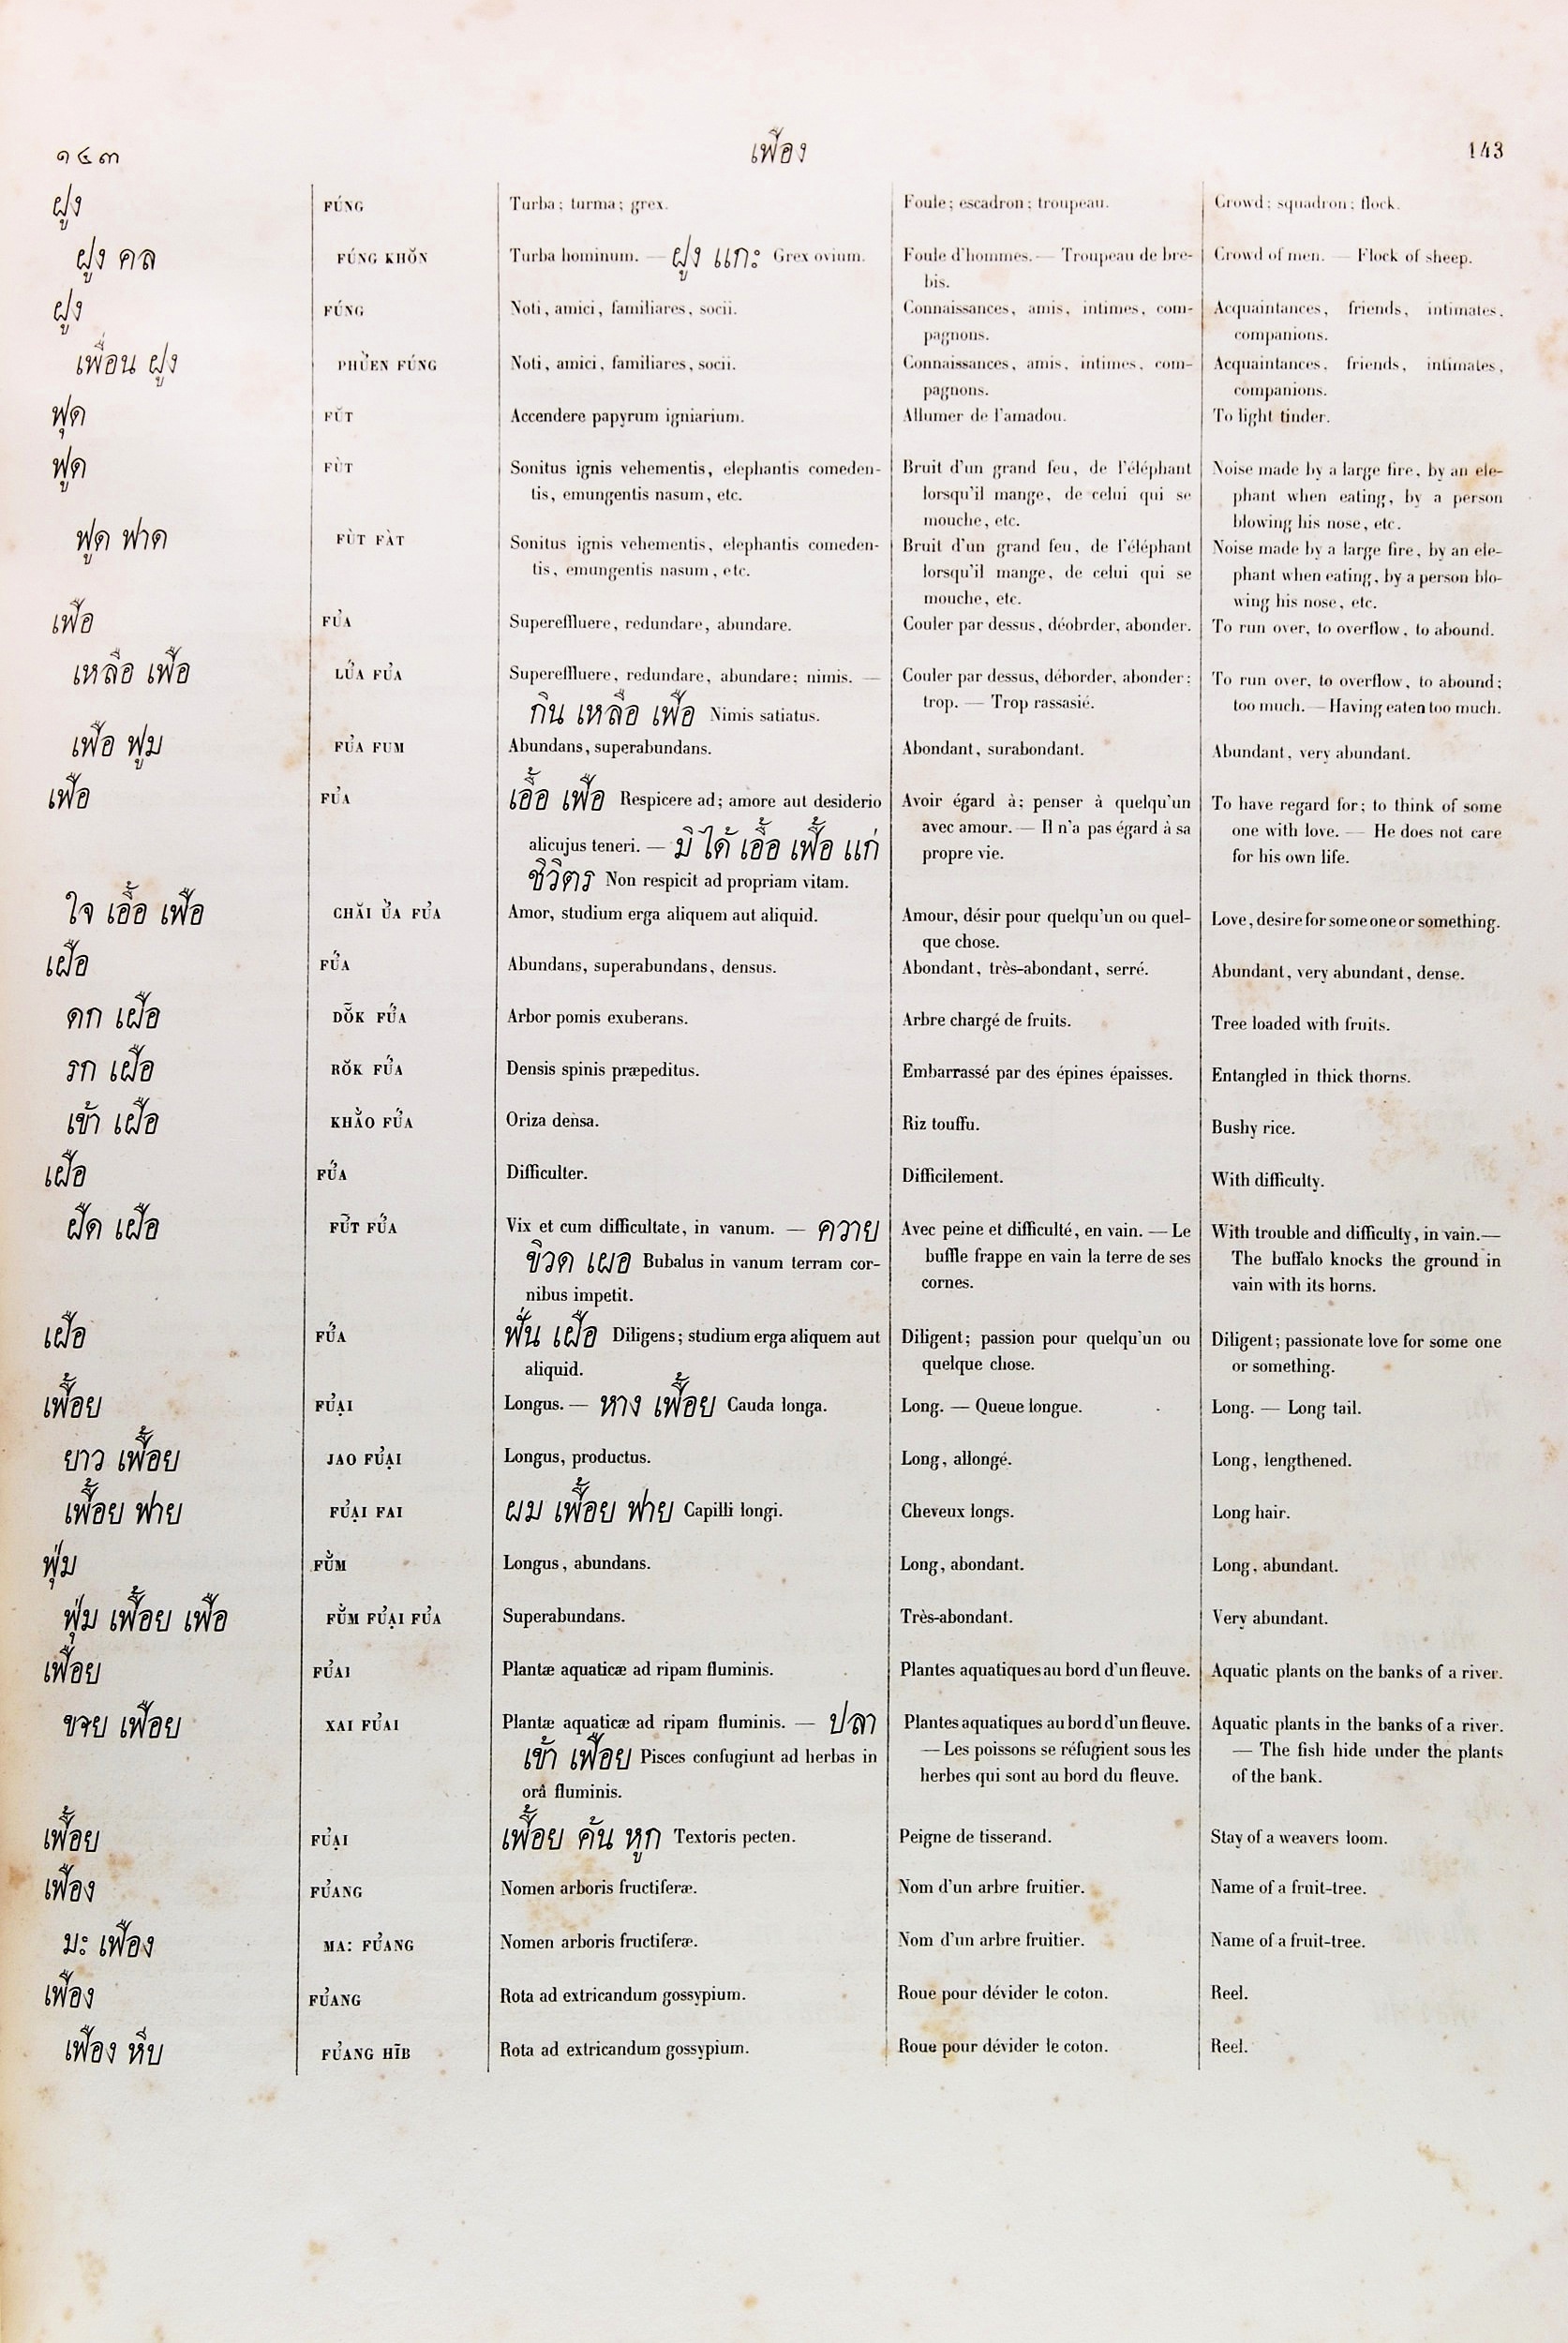 ๑๔๓ เฟือง 143
ฝูง FÚNG Turba; turma; grex. Foule; escadron; troupeau. Crowd; squadron; flock.
ฝูง คล FÚNG KHŎN Turba hominum. — ฝูง แกะ Grex ovium. Foule d'hommes. — Troupeau de bre- Crowd of men. — Flock of sheep.
bis.
ฝูง FÚNG Noti, amici, familiares, socii. Connaissances, amis, intimes, com- Acquaintances, friends, intimates,
pagnons. companions.
เพื่อน ฝูง PHU̐EN FÚNG Noti, amici, familiares, socii. Connaissances, amis, intimes, com- Acquaintances, friends, intimates,
pagnons. companions.
ฟุด FŬT Accendere papyrum igniarium. Allumer de l'amadou. To light tinder.
ฟูด FÙT Sonitus ignis vehementis, elephantis comeden- Bruit d'un grand feu, de l'éléphant Noise made by a large fire, by an ele-
tis, emungentis nasum, etc. lorsqu'il mange, de celui qui se phant when eating, by a person
mouche, etc. blowing his nose, etc.
ฟูด ฟาด FÙT FÀT Sonitus ignis vehementis, elephantis comeden- Bruit d'un grand feu, de l'éléphant Noise made by a large fire, by an ele-
tis, emungentis nasum, etc. lorsqu'il mange, de celui qui se phant when eating, by a person blo-
mouche, etc. wing his nose, etc.
เฟือ FỦA Supereffluere, redundare, abundare. Couler par dessus, déobrder, abonder. To run over, to overflow, to abound.
เหลือ เฟือ LỦ́A FỦA Supereffluere, redundare, abundare; nimis. — Couler par dessus, déborder, abonder; To run over, to overflow, to abound;
กิน เหลือ เฟือ Nimis satiatus. trop. — Trop rassasié. too much. — Having eaten too much.
เฟือ ฟูม FỦA FUM Abundans, superabundans. Abondant, surabondant. Abundant, very abundant.
เฟือ FỦA เอื้อ เฟือ Respicere ad; amore aut desiderio Avoir égard à; penser à quelqu'un To have regard for; to think of some
alicujus teneri. — มิ ได้ เอื้อ เฟื้อ แก่ avec amour. — Il n'a pas égard à sa one with love. — He does not care
ชิวิตร Non respicit ad propriam vitam. propre vie. for his own life.
ใจ เอื้อ เฟือ CHĂI Ủ̀A FỦA Amor, studium erga aliquem aut aliquid. Amour, désir pour quelqu'un ou quel- Love, desire for some one or something.
que chose.
เฝือ FỦ́A Abundans, superabundans, densus. Abondant, très-abondant, serré. Abundant, very abundant, dense.
ดก เฝือ DŎ̄K FỦ́A Arbor pomis exuberans. Arbre chargé de fruits. Tree loaded with fruits.
รก เฝือ RŎK FỦ́A Densis spinis præpeditus. Embarrassé par des épines épaisses. Entangled in thick thorns.
เข้า เฝือ KHẰO FỦ́A Oriza densa. Riz touffu. Bushy rice.
เฝือ FỦ́A Difficulter. Difficilement. With difficulty.
ฝืด เฝือ FỦ̄T FỦ́A Vix et cum difficultate, in vanum. — ควาย Avec peine et difficulté, en vain. — Le With trouble and difficulty, in vain.—
ขิวด เผอ Bubalus in vanum terram cor- buffle frappe en vain la terre de ses The buffalo knocks the ground in
nibus impetit. cornes. vain with its horns.
เฝือ FỦ́A ฟั่น เฝือ Diligens; studium erga aliquem aut Diligent; passion pour quelqu'un ou Diligent; passionate love for some one
aliquid. quelque chose. or something.
เฟื้อย FỦẠI Longus. — หาง เฟื้อย Cauda longa. Long. — Queue longue. Long. — Long tail.
ยาว เฟื้อย JAO FỦẠI Longus, productus. Long, allongé. Long, lengthened.
เฟื้อย ฟาย FỦẠI FAI ผม เฟื้อย ฟาย Capilli longi. Cheveux longs. Long hair.
ฟุ่ม FŬ̀M Longus, abundans. Long, abondant. Long, abundant.
ฟุ่ม เฟื้อย เฟือ FŬ̀M FỦẠI FỦA Superabundans. Très-abondant. Very abundant.
เฟือย FỦAI Plantæ aquaticæ ad ripam fluminis. Plantes aquatiques au bord d'un fleuve. Aquatic plants on the banks of a river.
ขจย เฟือย XAI FỦAI Plantæ aquaticæ ad ripam fluminis. — ปลา Plantes aquatiques au bord d'un fleuve. Aquatic plants in the banks of a river.
เข้า เฟือย Pisces confugiunt ad herbas in — Les poissons se réfugient sous les — The fish hide under the plants
orâ fluminis. herbes qui sont au bord du fleuve. of the bank.
เฟื้อย FỦẠI เฟื้อย คั้น หูก Textoris pecten. Peigne de tisserand. Stay of a weavers loom.
เฟือง FỦANG Nomen arboris fructiferæ. Nom d'un arbre fruitier. Name of a fruit-tree.
มะ เฟือง MA: FỦANG Nomen arboris fructiferæ. Nom d'un arbre fruitier. Name of a fruit-tree.
เฟือง FỦANG Rota ad extricandum gossypium. Roue pour dévider le coton. Reel.
เฟือง หีบ FỦANG HĪB Rota ad extricandum gossypium. Roue pour dévider le coton. Reel.